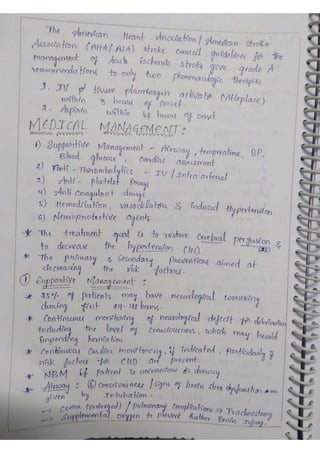 The American Heart Association / American stroke
Association (AHA/ASA) stroke council guidelines for the
management of Acute ischemic stroke give grade A
recommendations to only two pharmacologic therapies
1. IV tissue plasminogen activator (Alteplase)
within 3 hours of onset.
2. Aspirin within 48 hours of onset
MEDICAL MANAGEMENT:
1) Supportive Management - Airway, temperature, BP,
Blood glucose, cardiac assessment
2) Anti-Thrombolytics - IV / Intra-arterial
3) Anti-platelet Drugs
4) Anti coagulant drugs
5) Hemodilution, vasodilators & induced Hypertension
6) Neuroprotective agents.
* The treatment goal is to restore cerebral perfusion &
to decrease the hypertension
* The primary & secondary prevention aimed at
decreasing the risk factors.
① Supportive Management:
* 25% of patients may have neurological worsening
during first 24-48 hours.
* Continuous monitoring of neurological deficit for deterioration
including the level of consciousness, which may herald
impending herniation
* Continuous cardiac monitoring, if indicated, particularly if
risk factors for CHD are present
* NBM if patient is unconscious or drowsy
* Airway: consciousness / signs of brain stem dysfunction
given by Intubation.
→ Coma (prolonged) / pulmonary complications → Tracheostomy
→ Supplemental oxygen to prevent further Brain Injury.